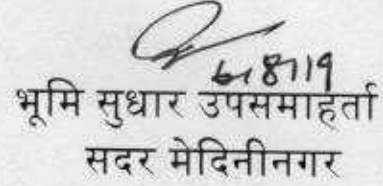 6/8/19
भूमि सुधार उपसमाहर्ता
सदर मेदिनीनगर